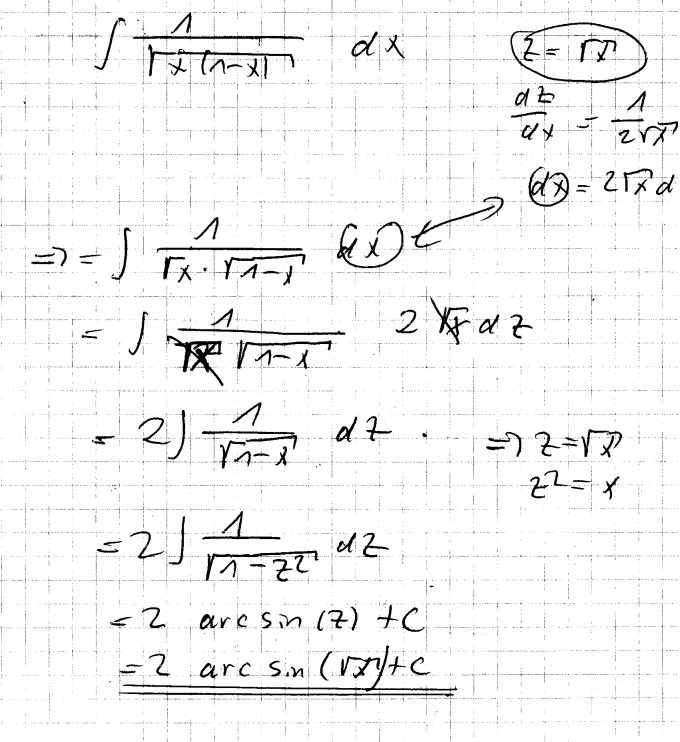 ∫ 1/√(x(1-x)) dx
z = √x
dz/dx = 1/(2√x)
dx = 2√x d
=> = ∫ 1/(√x · √(1-x)) dx
= ∫ 1/(√x √(1-x)) 2√x dz
= 2∫ 1/√(1-x) dz . => z = √x
z² = x
= 2∫ 1/√(1-z²) dz
= 2 arc sin (z) + C
= 2 arc sin (√x) + C